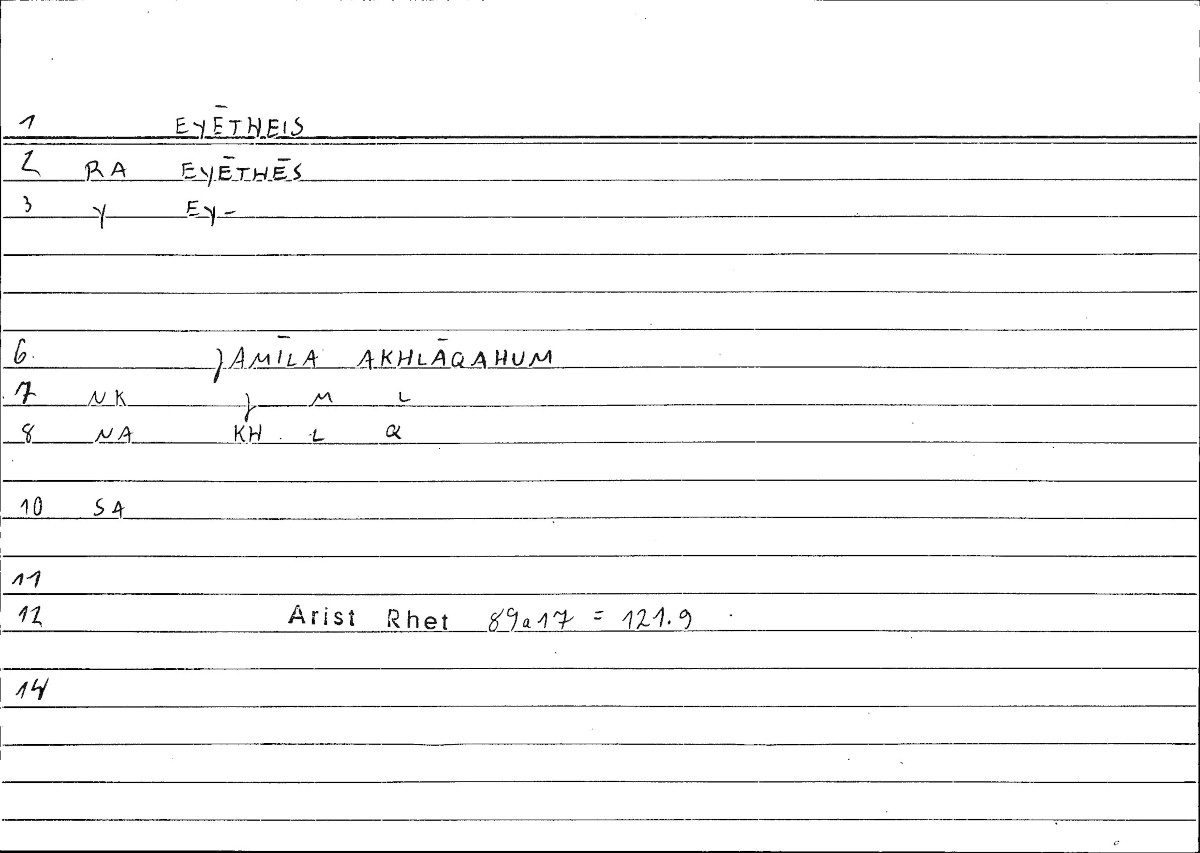 1 EYĒTHEIS
2 RA EYĒTHĒS
3 Y EY-
6. JAMĪLA AKHLĀQAHUM
7 NK J M L
8 NA KH L Q
10 SA
11
12 Arist Rhet 89a17 = 121.9
14